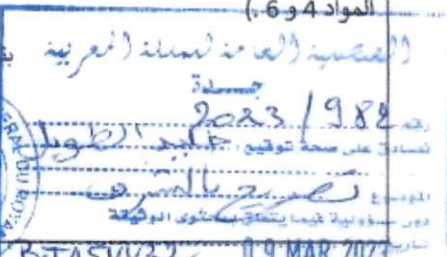 المواد 4 و 6 .)
القنصلية العامة للمملكة المغربية
جــــدة
رقم 2023/982
تصادق على صحة توقيع خليد الطويل
الموضوع تصريح بالشرف
دون مسؤولية فيما يتعلق بمحتوى الوثيقة
تاريخ 09 MAR 2023